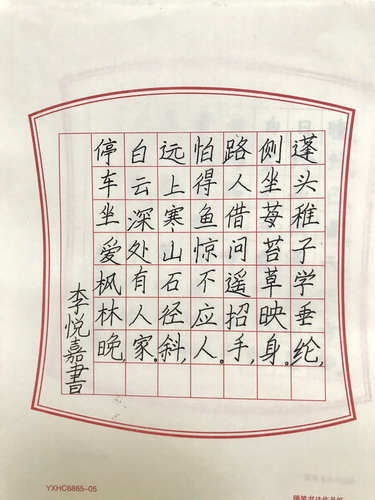 蓬头稚子学垂纶,
侧坐莓苔草映身。
路人借问遥招手,
怕得鱼惊不应人。
远上寒山石径斜,
白云深处有人家。
停车坐爱枫林晚,
李悦嘉書
YXHC6865-05